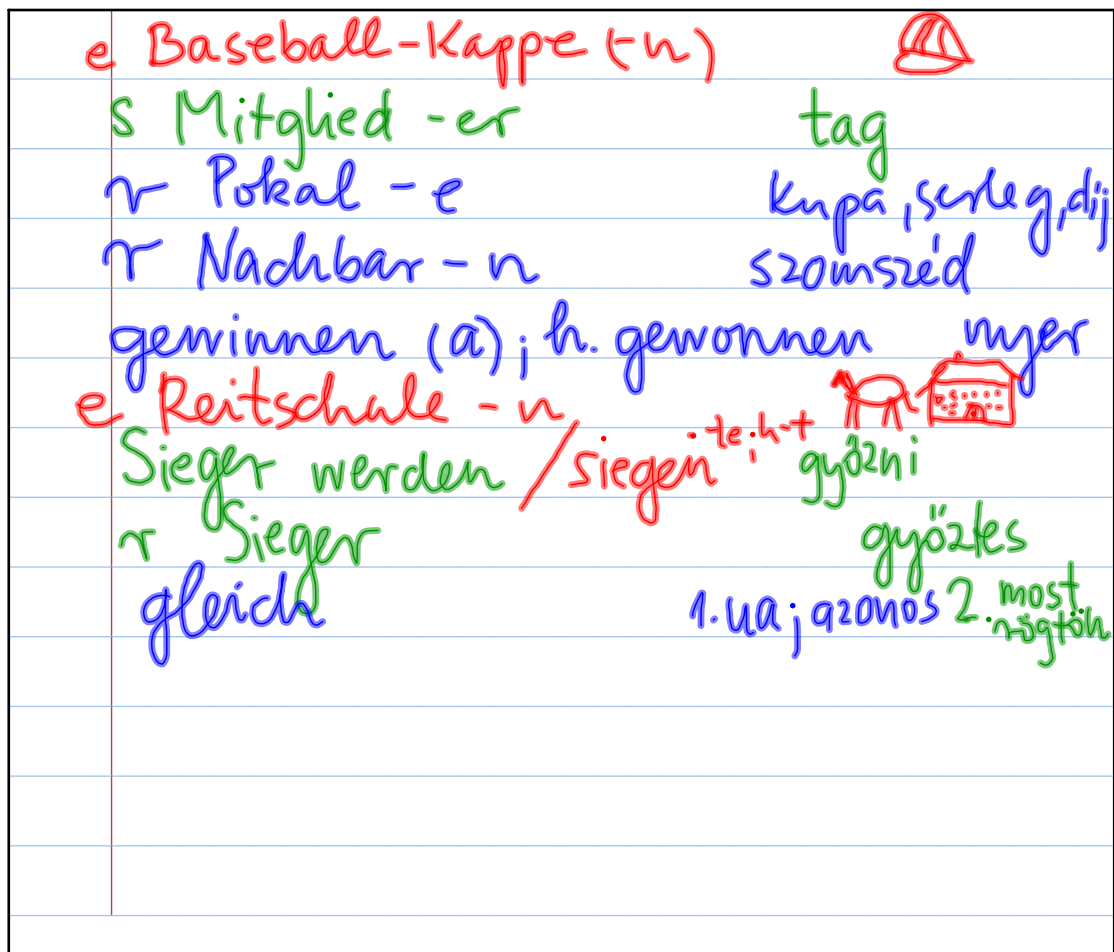 e Baseball-Kappe (-n)
s Mitglied -er tag
r Pokal -e kupa, serleg, díj
r Nachbar -n szomszéd
gewinnen (a); h. gewonnen nyer
e Reitschule -n
Sieger werden / siegen -te; h -t győzni
r Sieger győztes
gleich 1. ua; azonos 2. most rögtön